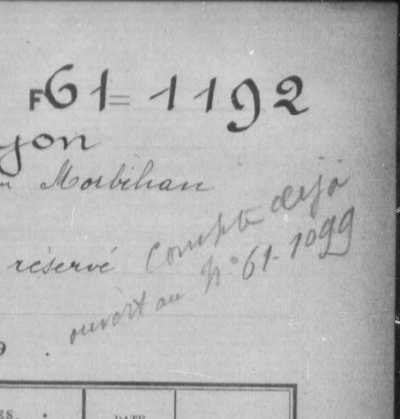 F61=1192
yon
Morbihan
réservé Compte déjà
ouvert au N° 61-1099
ES.
DATE